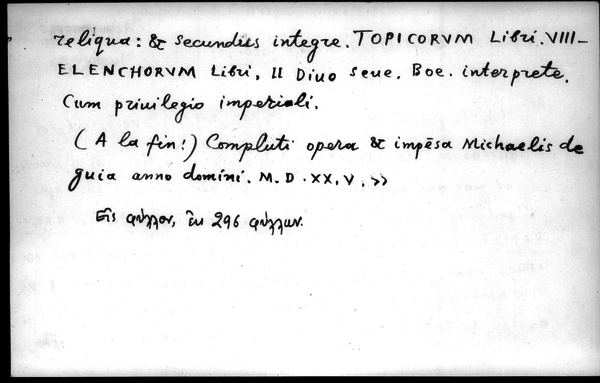 reliqua: & secundus integre. TOPICORVM Libri. VIII-
ELENCHORVM Libri, II Diuo Seue. Boe. interprete.
Cum priuilegio imperiali.
(A la fin:) Compluti opera & impēsa Michaelis de
guia anno domini. M. D. XX, V. »
Εἰς φύλλον, ἐκ 296 φύλλων.